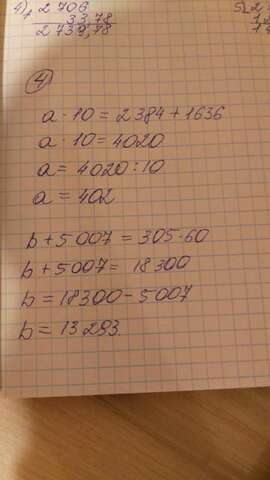 4) + 2 706
33,78
2 739,78
5) 2
1
14
④
a · 10 = 2 384 + 1636
a · 10 = 4020
a = 4020 : 10
a = 402
b + 5 007 = 305 · 60
b + 5 007 = 18 300
b = 18 300 - 5 007
b = 13 293.